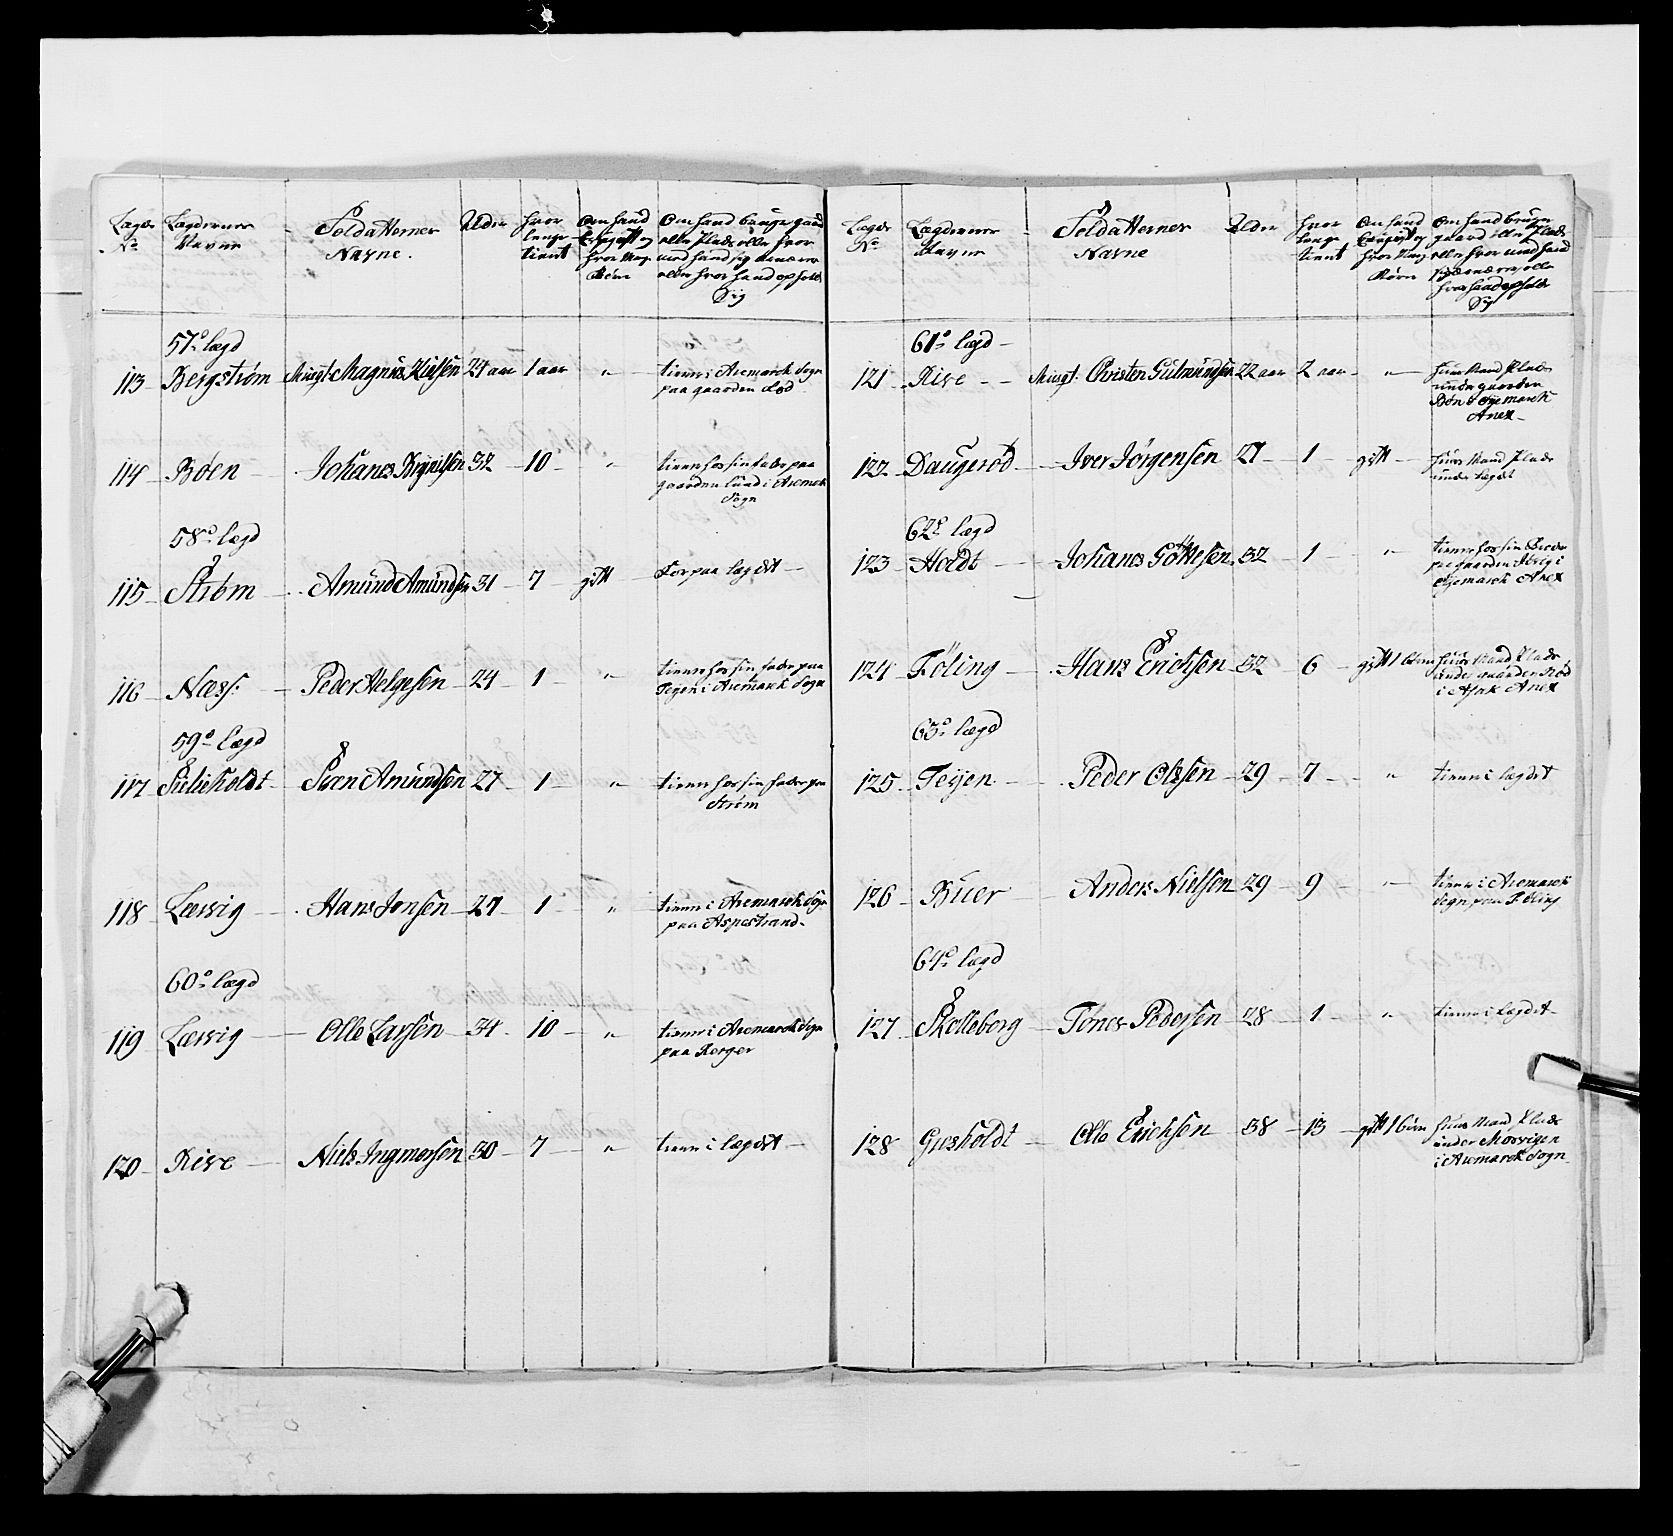 Lægds No
Lægdernes Navne
Soldatternes Navne.
Alder
hvor lenge tient
Om hand Er gift og hvor Mange Børn
Om hand bruger gaard eller Plads eller hvor med hand sig ernærer eller hvor hand opholder Sig
57de lægd
113 Bergstrøm Musqt. Magnus Nielsen 24 aar 1 aar " tiener i Aremark Sogn
paa gaarden Lød
114 Bøen Johanes Brynilsen 32 10 " tiener hos sin fader paa
gaarden Lund i Aremark
Sogn
58de lægd
115 Strøm Amund Amundsen 31 7 gift Boer paa lægdet
116 Næss Peder Helgesen 24 1 " tiener hos sin fader paa
Teyen i Aremark Sogn
59de lægd
117 Sulusholdt Sven Amundsen 27 1 " tiener hos sin fader paa
Strøm
118 Lærvig Hans Jonsen 27 1 " tiener i Aremark Sogn
paa Aspestrand
60de lægd
119 Lærvig Olle Larsen 34 10 " tiener i Aremark Sogn
paa Korger
120 Kirve Niels Ingmersen 30 7 " tiener i lægdet
Lægds No
Lægdernes Navne
Soldatternes Navne
Alder
hvor lenge tient
Om hand Er gift og hvor Mange Børn
Om hand bruger gaard eller Plads eller hvor med hand sig ernærer eller hvor hand opholder Sig
61de lægd
121 Kirve Musqt. Christen Gulmundsen 22 aar 2 aar " huus Mand Plads
under gaarden
Bøn i Øyemark
Anex
122 Daugerød Iver Jørgensen 27 1 gift huus Mand Plads
under lægdet
62de lægd
123 Holdt Johanes Göttesen 32 1 " tiener hos sin Broder
paa gaarden i
Øyemark Anex
124 Föling Hans Erichsen 32 6 gift 1 barn huus Mand Plads
under gaarden
i Anex
63de lægd
125 Teyen Peder Olssen 29 7 " tiener i lægdet
126 Buer Anders Nielsen 29 9 " tiener i Aremark
Sogn paa Föling
64de lægd
127 Skolleborg Tønes Pedersen 28 1 " tiener i lægdet
128 Gresholdt Olle Erichsen 38 13 gift 1 barn huus Mand Plads
under Morvigen
i Aremark Sogn